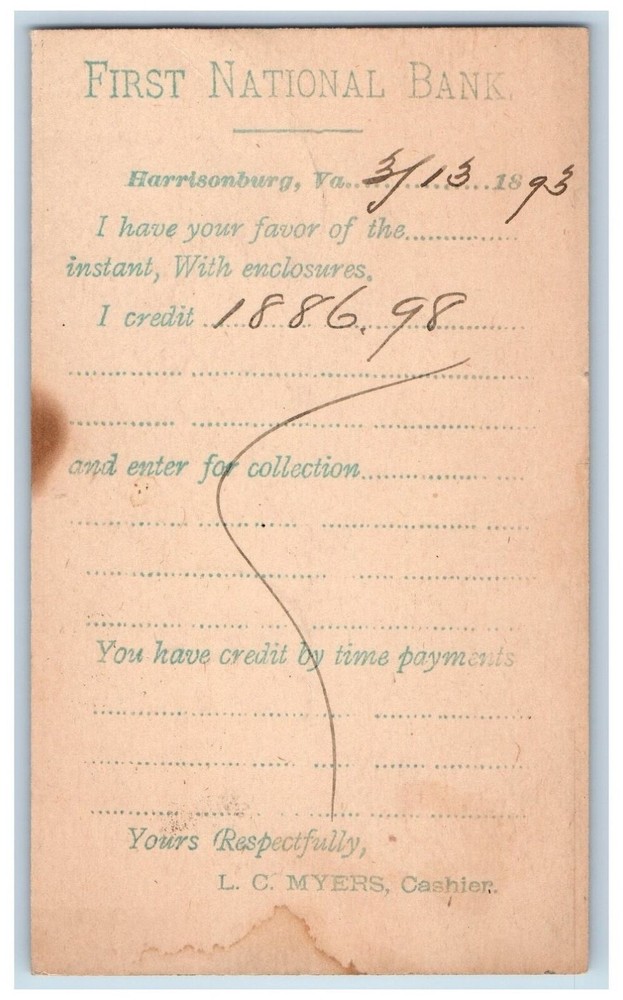 FIRST NATIONAL BANK.
Harrisonburg, Va. 3/13 1893
I have your favor of the
instant, With enclosures.
I credit 1886.98
and enter for collection
You have credit by time payments
Yours Respectfully,
L. C. MYERS, Cashier.